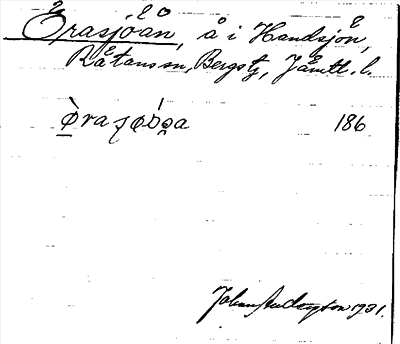 Örasjöån, å i Handsjön,
Råtans sn, Bergs tg, Jämtl. l.
ø̀raʃøb́o̯a 186
Johan Anderson 1931.